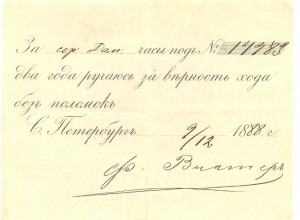 За сер. Дам. часы подъ № 14989
два года ругаюсь за вѣрность хода
безъ поломокъ
С. Петербургъ 9/12 1888 г.
Ф. Винтеръ